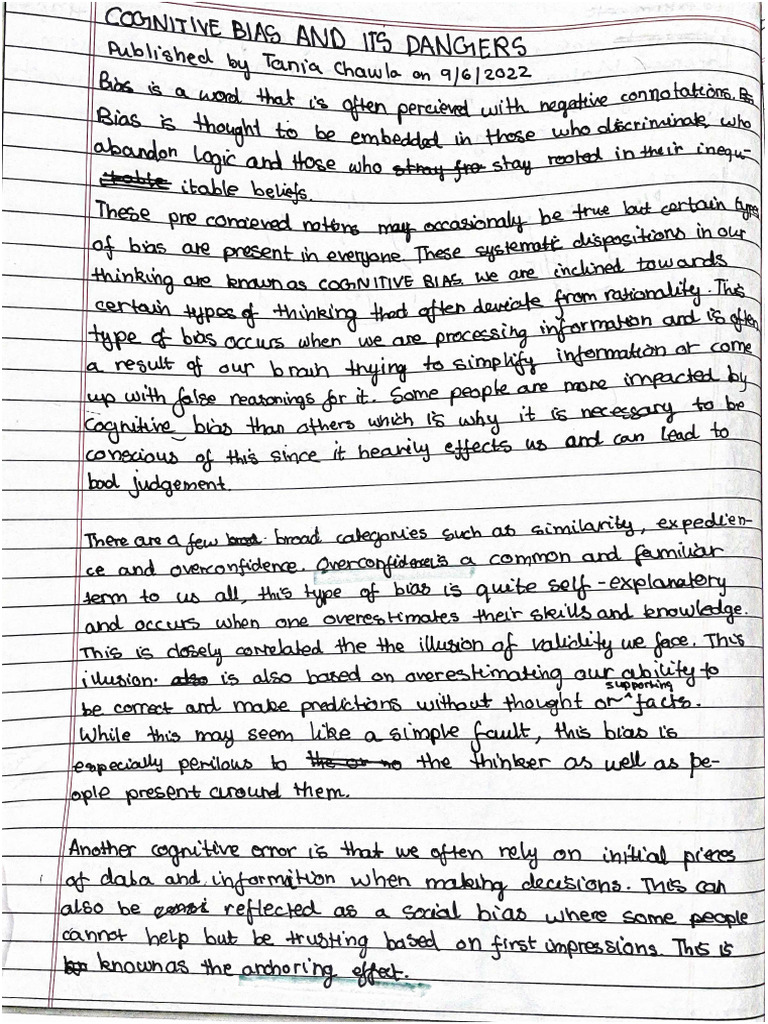 COGNITIVE BIAS AND ITS DANGERS
Published by Tania Chawla on 9/6/2022
Bias is a word that is often percieved with negative connotations.
Bias is thought to be embedded in those who discriminate, who
abandon logic and those who stray fro stay rooted in their inequ-
itable beliefs.
These pre concieved notions may occasionaly be true but certain types
of bias are present in everyone. These systematic dispositions in our
thinking are known as COGNITIVE BIAS. We are inclined towards
certain types of thinking that often deviate from rationality. This
type of bias occurs when we are processing information and is often
a result of our brain trying to simplify information or come
up with false reasonings for it. Some people are more impacted by
cognitive bias than others which is why it is necessary to be
conscious of this since it heavily effects us and can lead to
bad judgement.
There are a few broad categories such as similarity, expedien-
ce and overconfidence. Overconfidence is a common and familiar
term to us all, this type of bias is quite self-explanatory
and occurs when one overestimates their skills and knowledge.
This is closely correlated the the illusion of validity we face. This
illusion also is also based on overestimating our ability to
be correct and make predictions without thought or supporting facts.
While this may seem like a simple fault, this bias is
especially perilous to the thinker as well as pe-
ople present around them.
Another cognitive error is that we often rely on initial pieces
of data and information when making decisions. This can
also be reflected as a social bias where some people
cannot help but be trusting based on first impressions. This is
known as the anchoring effect.